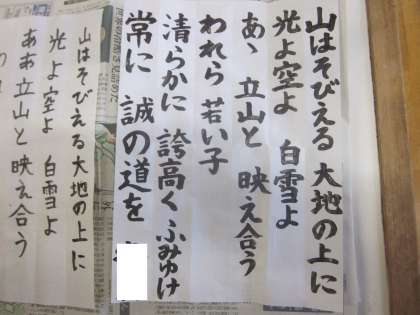 山はそびえる 大地の上に
光よ空よ 白雪よ
あゝ 立山と 映え合う
われら 若い子
清らかに 誇高く ふみゆけ
常に 誠の道を
山はそびえる 大地の上に
光よ空よ 白雪よ
ああ 立山と 映え合う